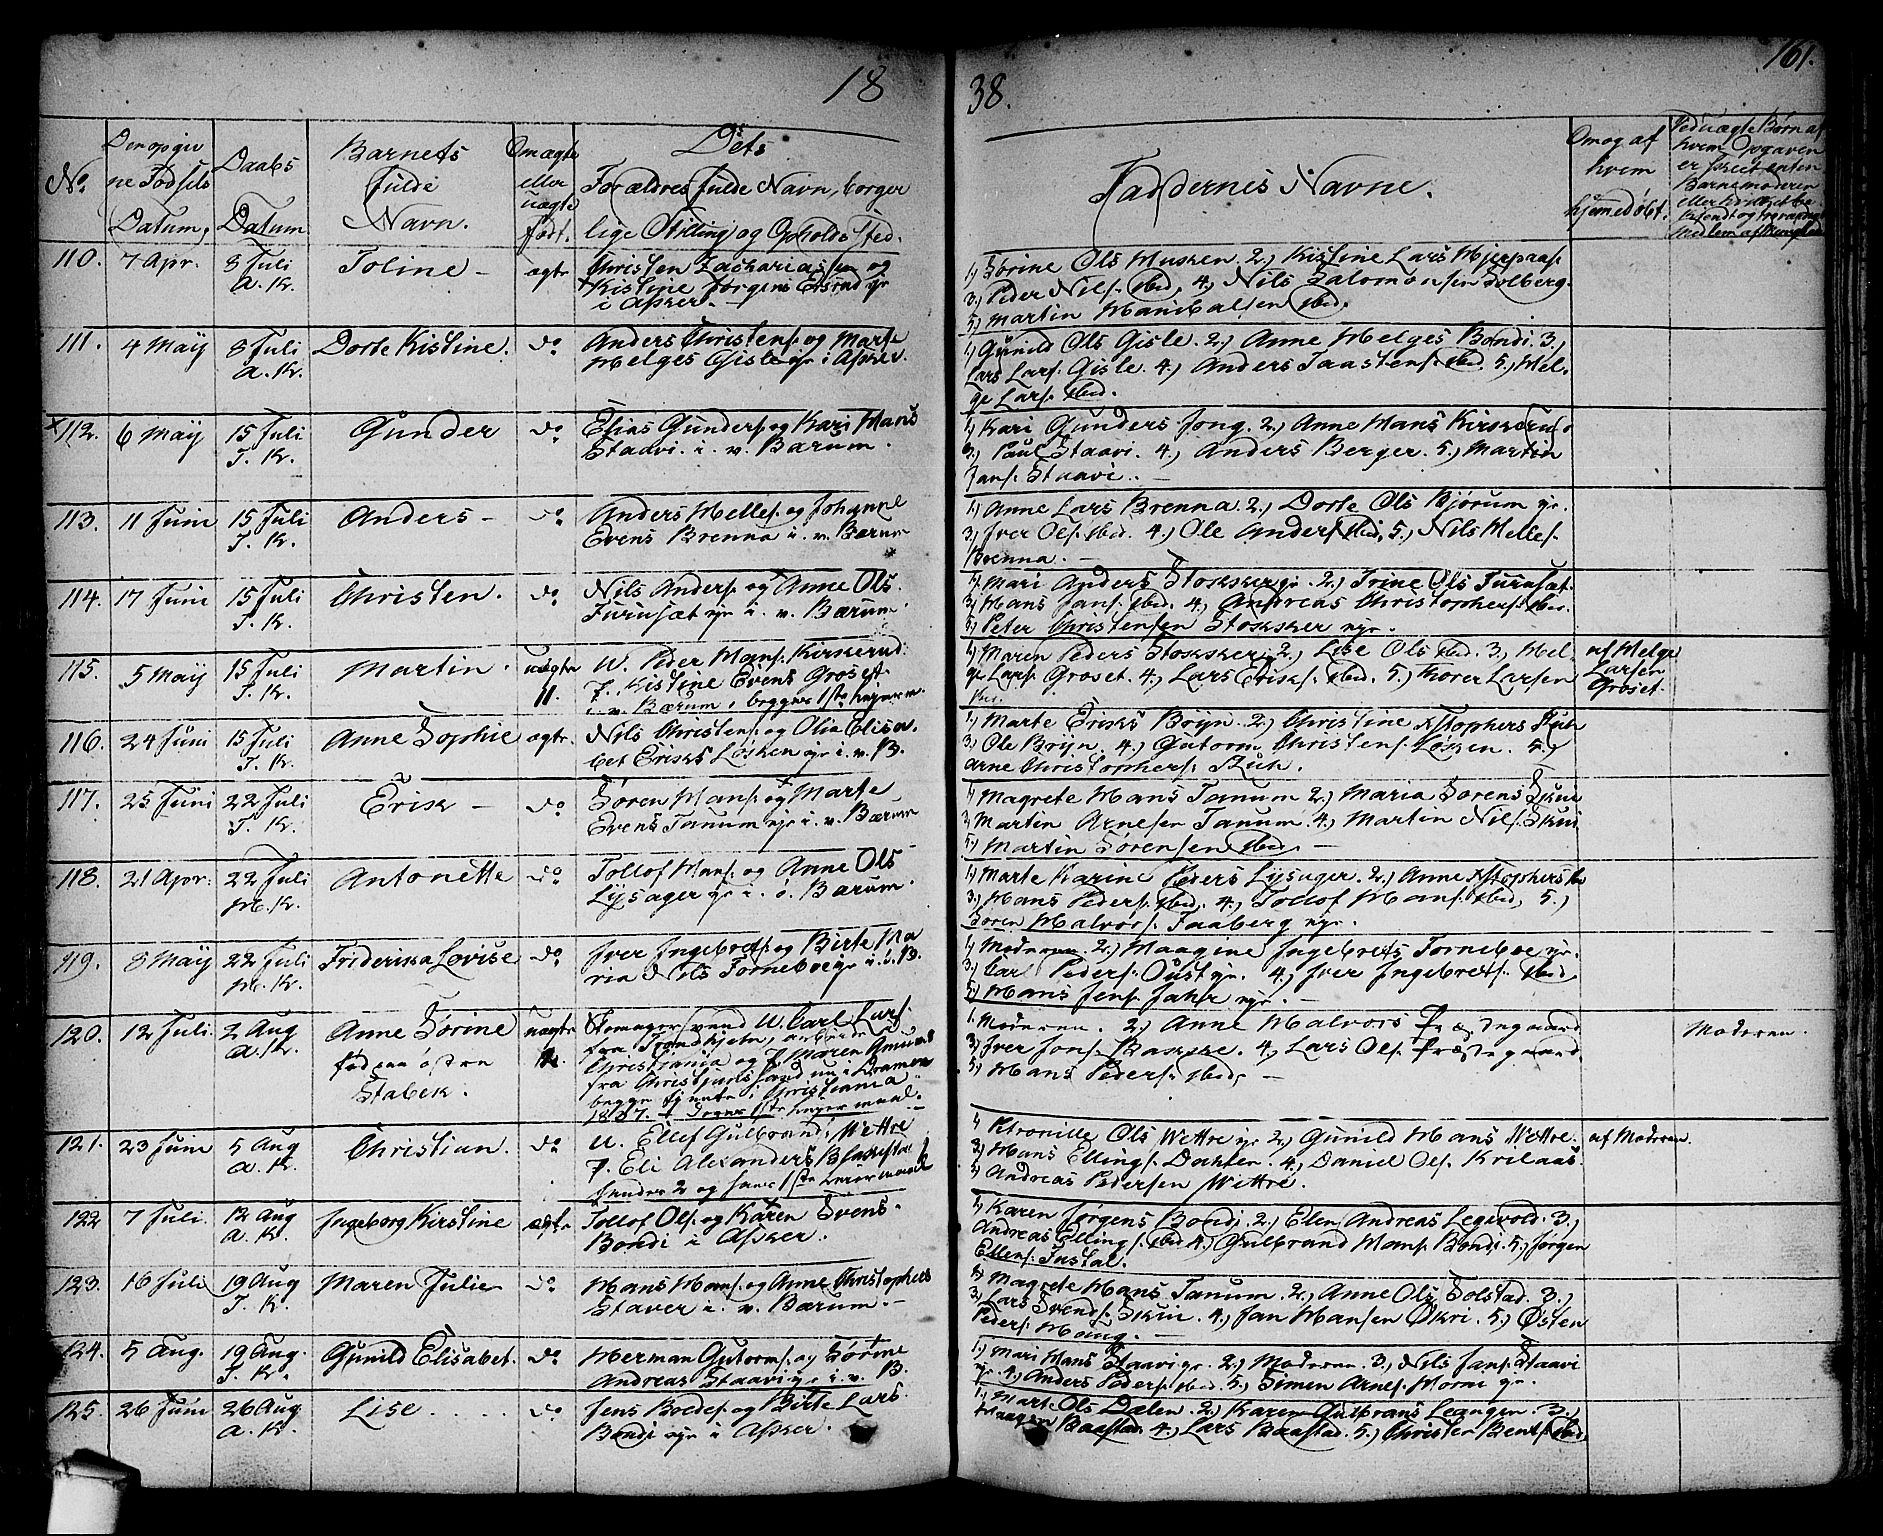 1838.
161.
No.
Den opgivne Fødsels Datum,
Daabs Datum
Barnets fulde Navn.
Om ægte eller uægte født.
Dets Forældres fulde Navn, borgerlige Stilling og Opholds Sted.
Faddernes Navne.
Om og af hvem hjemedøbt.
Ved uægte Børn af hvem Opgaven er skeet enten Barnemoderen eller
110. 7 Apr. 8 Juli A. K. Toline - ægte Christen Zachariassen og
Kistine Jørgens Eisrud gr
i Asker. -
1, Sørine Ols Musken 2, Kistine Lars
3, Peder Nils. ibid, 4, Nils Salomonsen Solberg.
5, Martin Hanibalsen ibid.
111. 4 Maij 8 Juli A. K. Dorte Kistine. do Anders Christens. og Marte
Helges Gisle gr i Asker.
1, Gunild Ols Gisle. 2, Anne Helges Bondi. 3,
Lars Lars. Gisle. 4, Anders Taastens. ibid. 5, Hel-
ge Lars. ibid.
x112. 6 Maij 15 Juli T. K. Gunder do Elias Gunders. og Kari Hans
Staavi. i. v. Bærum.
1, Kari Gunders Jong. 2, Anne Hans Kirkerud
3, Paul Staavi. 4, Anders Berger. 5, Martin
Jans. Staavi. -
113. 11 Juni 15 Juli T. K. Anders - do Anders Helles. og Johanne
Evens Brenna i. v. Bærum
1, Anne Lars Brenna. 2, Dorte Ols Bjørum gr.
3, Iver Ols. ibid. 4, Ole Anders. ibid, 5, Nils Helles.
Brenna. -
114. 17 Juni 15 Juli T. K. Christen. do Nils Anders. og Anne Ols
Furusæt ejr i. v. Bærum.
1, Mari Anders Stoksker gr. 2, Trine Ols Furusæt
3, Hans Jans. ibid. 4, Andreas Christophers. ibid.
5, Peter Christensen Stoksker ejr.
115. 5 Maij 15 Juli T. K. Martin. uægte 11. U. Peder Hans. Kirkerud.
F. Kistine Evens Groset
i. v. Bærum, begges 1ste Leierm.
1, Maren Peders Stoksker. 2, Lise Ols ibid. 3, Hel-
ge Lars. Groset. 4, Lars Eriks. ibid. 5, Thorer Larsen
ibid.
af Helge
Larsen
Groset.
116. 24 Juni 15 Juli T. K. Anne Sophie ægte. Nils Christens. og Olia Elisa-
bet Eriks Løken ejr i. v. B.
1, Marte Eriks Brijn. 2, Christine Xstophers
3, Ole Brijn. 4, Gutorm Christens. Løken. 5,
Arne Christophers.
117. 25 Juni 22 Juli T. K. Erik - do Søren Hans. og Marte
Evens Tanum ejr i. v. Bærum
1, Magrete Hans Tanum 2, Maria Sørens Skui
3, Martin Arnesen Tanum. 4, Martin Nils. Skui
5, Martin Sørensen ibid. -
118. 21 Apr. 22 Juli H. K. Antonette do Tollof Hans. og Anne Ols
Lijsager gr i. ø. Bærum.
1, Marte Karine Peders Lijsager. 2, Anne Xstophers
3, Hans Peders. ibid. 4, Tollof Hans. ibid, 5,
Søren Halvors. Faaberg ejr.
119. 8 Maij 22 Juli H. K. Friderika Lovise do Iver Ingebrets. og Birte Ma
ria Nils Torneboe gr i. ø. B.
1, Moderen. 2, Maagine Ingebrets Torneboe gr.
3, Carl Peders. Oust gr. 4, Iver Ingebrets. ibid
5, Hans Jens. Jahr ejr. -
120. 12 Juli. 2 Aug A. K. Anne Sørine
fød paa østre
Stabek.
uægte 12. Skomagersvend U. Carl Lars.
fra Trondhjem,
Christiania og F. Maren Amund
fra Christiansand nu i Drammen
begge tjente i Christiania
1837.
1, Moderen. 2, Anne Halvors Præstegaard
3, Iver Jons. Bakke. 4, Lars Ols. Præstegaard.
5, Hans Peders. ibid, -
Moderen.
121. 23 Juni 5 Aug A. K. Christian. do U. Ellef Gulbrands. Wettre
F. Eli Alexanders
hendes 2 og hans 1ste Leiermaal
1, Petronille Ols Wettre gr 2, Gunild Hans Wettre.
3, Hans Ellings. Dahlen. 4, Daniel Ols.
5, Andreas Pedersen Wettre.
af Moderen.
122 7 Juli. 12 Aug A. K. Ingeborg Kirstine ægte Tollof Ols. og Karen Svens
Bondi i Asker.
1, Karen Jørgens Bondi. 2, Elen Andreas Legevold. 3,
Andreas Ellings. ibid 4, Gulbrand Hans. Bondi. 5, Jørgen
Ellens. Justal.
123. 16 Juli 19 Aug T. K. Maren Julie do Hans Hans. og Anne Christophers
Staver i. v. Bærum. -
1, Magrete Hans Tanum. 2, Anne Ols Solstad. 3,
Lars Svends. Skui. 4, Jan Hansen Økri. 5, Østen
Peders. Haug. -
124. 5 Aug. 19 Aug. T. K. Gunild Elisabet. do Herman Gutorms. og Sørine
Andreas Staavi gr i. v. B.
1, Mari Hans Staavi gr. 2, Moderen. 3, Nils Jans. Staavi
gr. 4, Anders Peders. ibid. 5, Simen Arnes. Horni gr.
125. 26 Juni 26 Aug A. K. Lise .... do Jens Boedes. og Birte Lars
Bondi ejr i Asker.
1, Marte Ols Dælen. 2, Karen Gulbrans Leangen. 3,
Haagen Baastad. 4, Lars Baastad. 5, Christen Bents. ibid